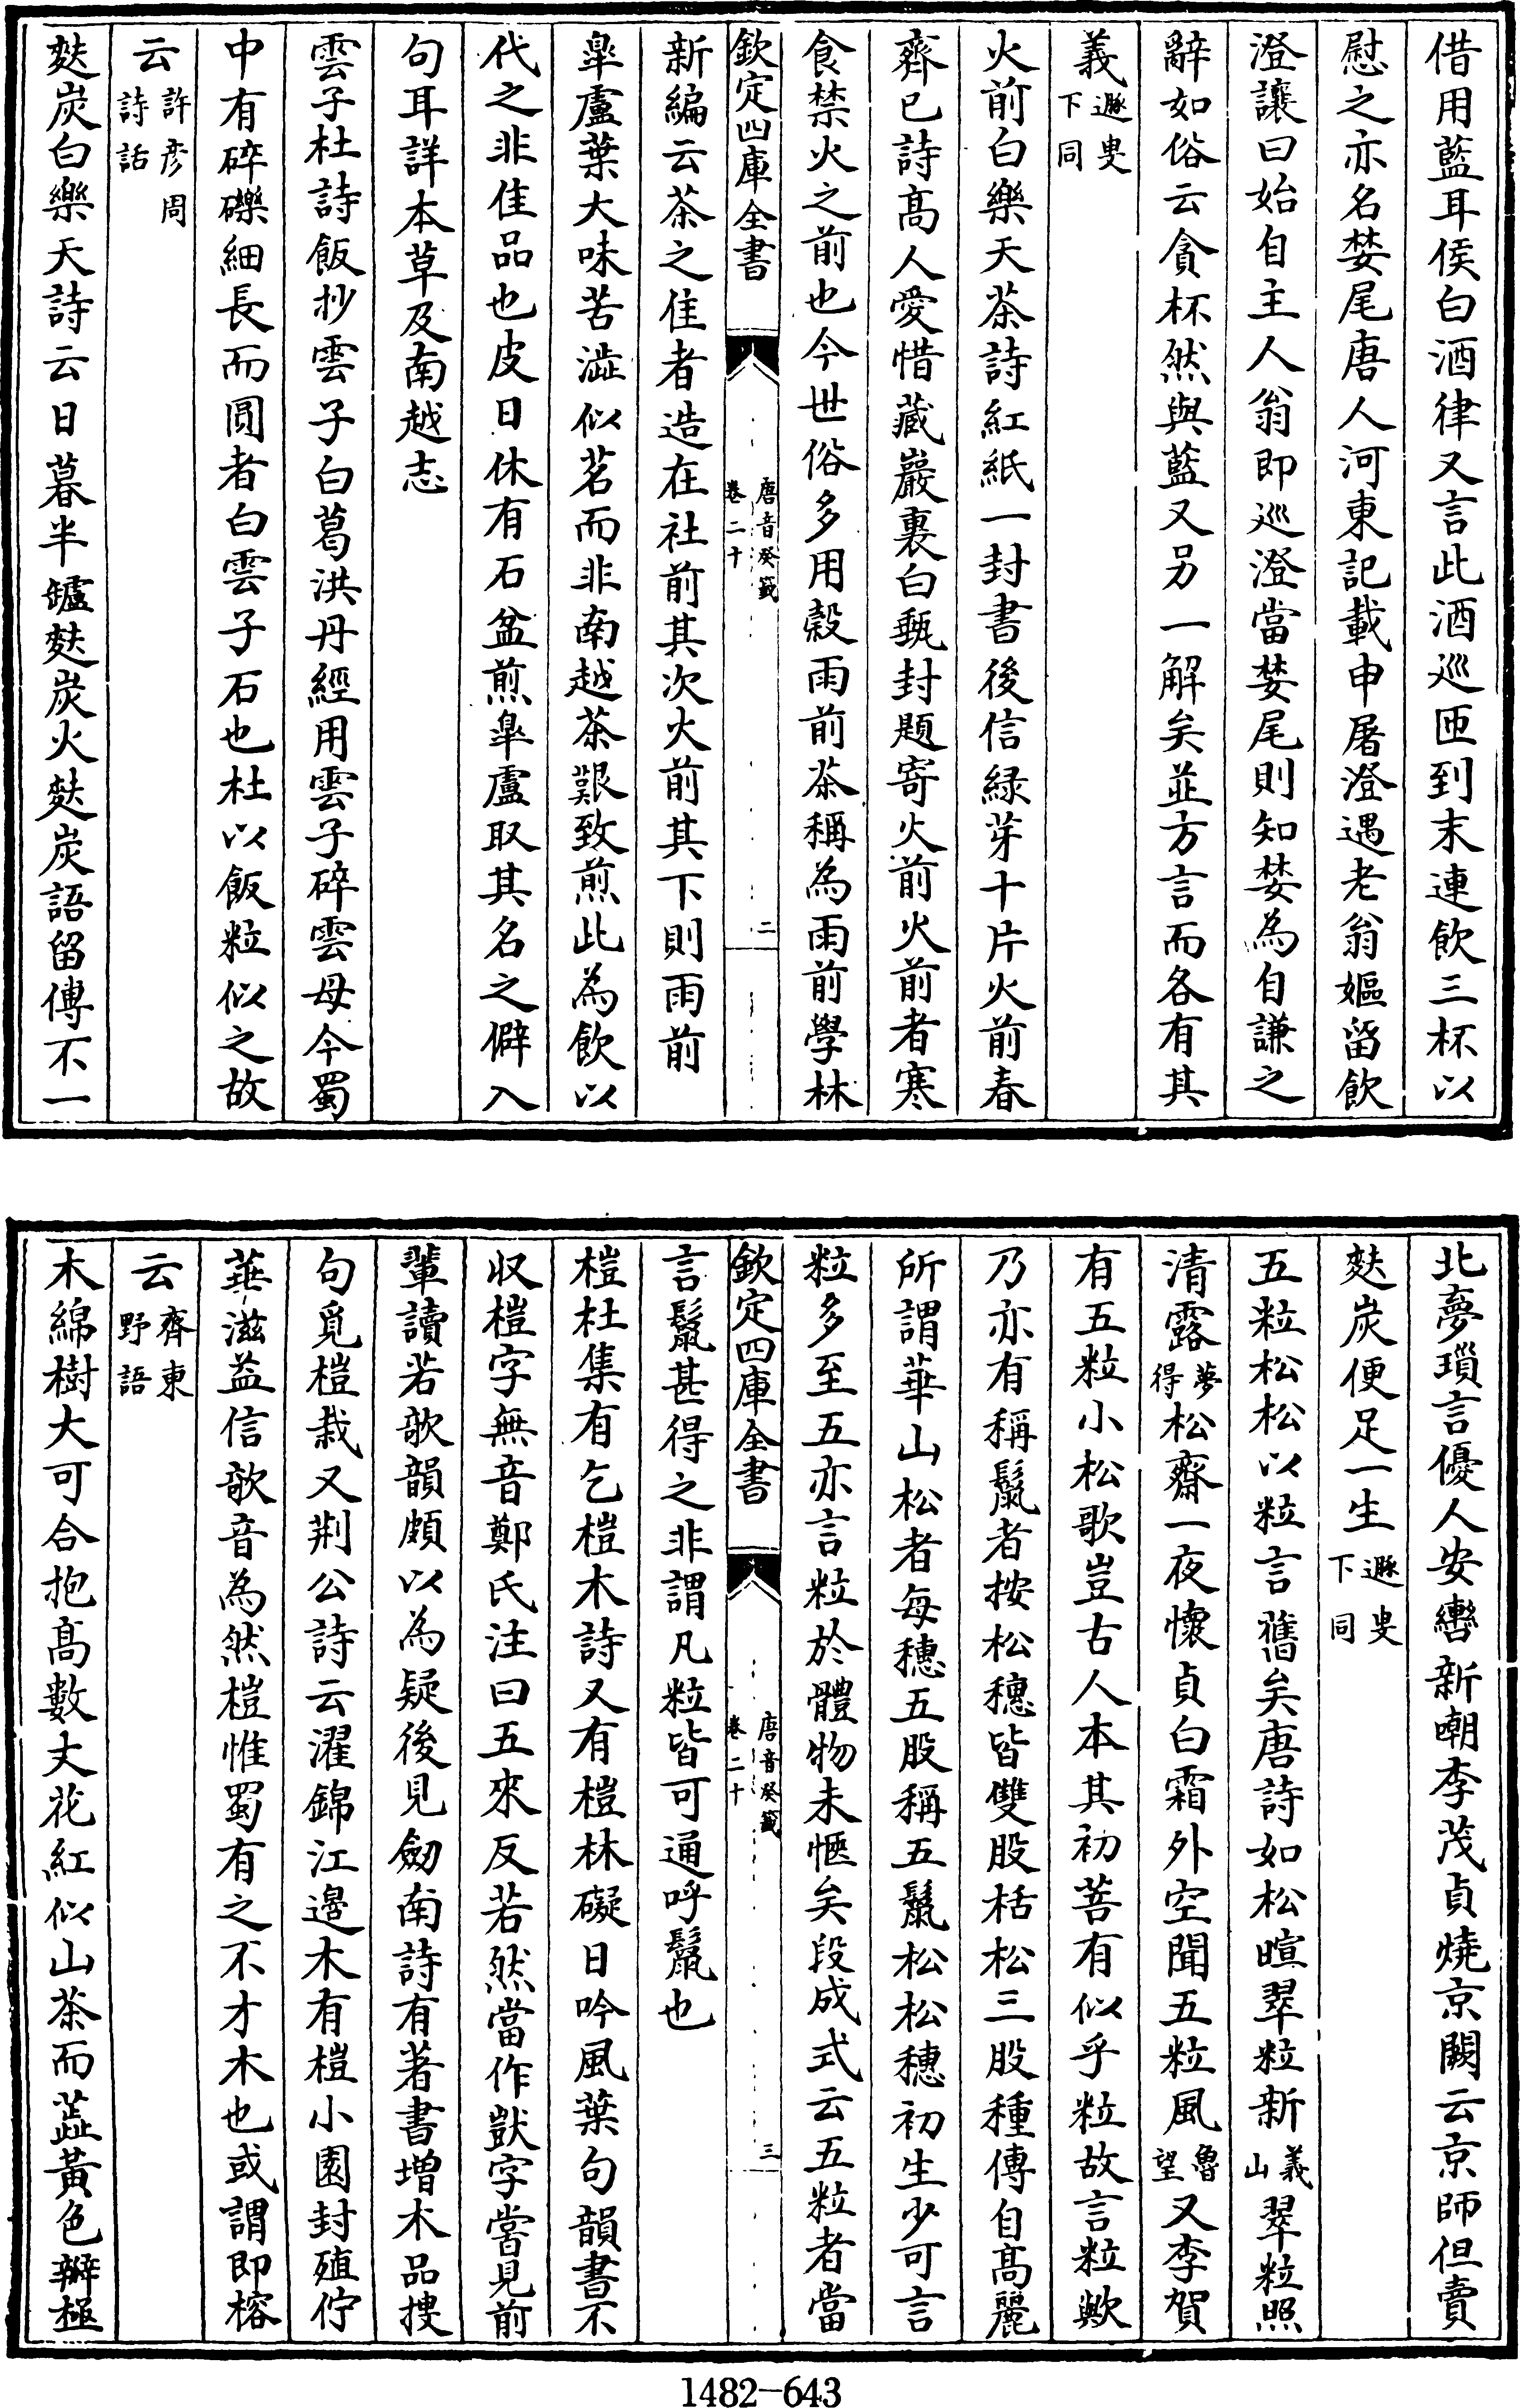 借用藍耳侯白酒律又言此酒巡匝到末連飲三杯以
慰之亦名婪尾唐人河東記載申屠澄遇老翁嫗留飲
澄讓曰始自主人翁即巡澄當婪尾則知婪為自謙之
辭如俗云貪杯然與藍又另一解矣並方言而各有其
義遯叟下同
火前白樂天茶詩紅紙一封書後信綠芽十片火前春
齊已詩高人愛惜藏巖裏白甀封題寄火前火前者寒
食禁火之前也今世俗多用榖雨前茶稱為雨前學林
欽定四庫全書
唐音癸籤
卷二十
二
新編云茶之佳者造在社前其次火前其下則雨前
皐盧葉大味苦澁似茗而非南越茶艱致煎此為飲以
代之非佳品也皮日休有石盆煎皐盧取其名之僻入
句耳詳本草及南越志
雲子杜詩飯抄雲子白葛洪丹經用雲子碎雲母今蜀
中有碎礫細長而圓者白雲子石也杜以飯粒似之故
云許彦周詩話
麩炭白樂天詩云日暮半罏麩炭火麩炭語留傳不一
北夢瑣言優人安轡新嘲李茂貞燒京闕云京師但賣
麩炭便足一生遯叟下同
五粒松松以粒言舊矣唐詩如松暄翠粒新義山翠粒照
清露夢得松齋一夜懷貞白霜外空聞五粒風魯望又李賀
有五粒小松歌豈古人本其初菩有似乎粒故言粒歟
乃亦有稱鬛者按松穗皆雙股栝松三股種傳自高麗
所謂華山松者每穗五股稱五鬛松松穗初生少可言
粒多至五亦言粒於體物未愜矣段成式云五粒者當
欽定四庫全書
唐音癸籤
卷二十
三
言鬛甚得之非謂凡粒皆可通呼鬛也
榿杜集有乞榿木詩又有榿林礙日吟風葉句韻書不
収榿字無音鄭氏注曰五來反若然當作獃字嘗見前
輩讀若欹韻頗以為疑後見劒南詩有著書增木品搜
句覓榿栽又荆公詩云濯錦江邉木有榿小園封殖佇
華滋益信欹音為然榿惟蜀有之不才木也或謂即榕
云齊東野語
木綿樹大可合抱高數丈花紅似山茶而蕋黃色瓣極
1482-643